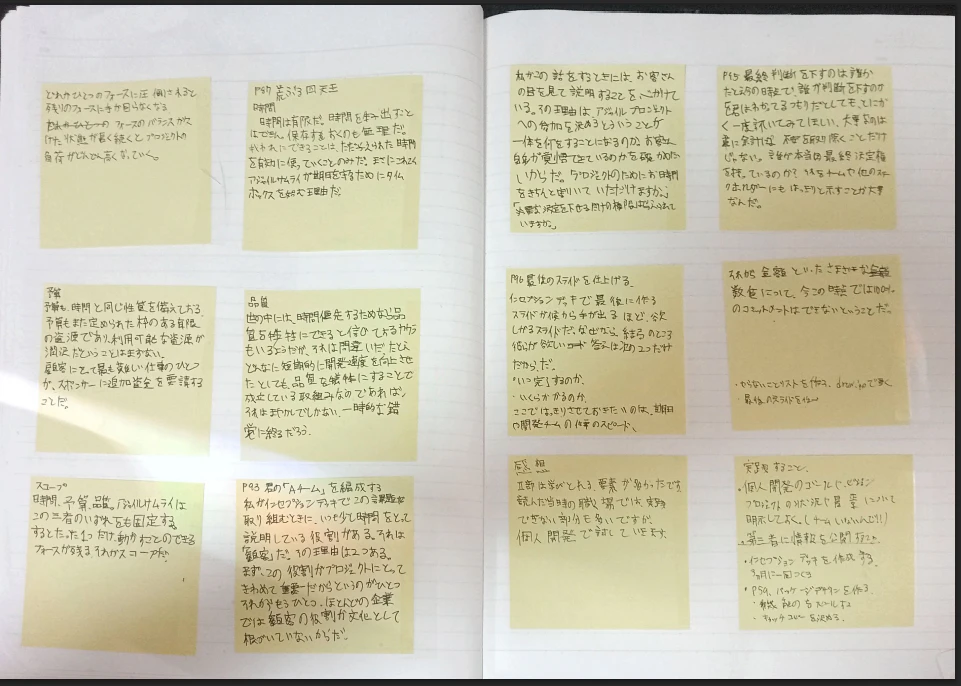 どれかひとつのフォースに圧倒されると
残りのフォースに手が回らなくなる
フォースのバランスが欠
けた状態が長く続くとプロジェクトの
負荷がどんどん高まっていく。
P87 荒ぶる四天王
時間
時間は有限だ。時間を生み出すこと
はできないし、保存しておくのも無理だ。
われわれにできることは、ただ与えられた時間
を有効に使っていくことのみだ。まさにこれこそ
アジャイルサムライが期日を守るためにタイム
ボックスを好む理由だ
予算
予算も、時間と同じ性質を備えておる
予算もまた定められた枠のある有限
の資源であり、利用可能な資源が
潤沢だということはまずない。
顧客にとって最も難しい仕事のひとつ
が、スポンサーに追加資金を要請する
ことだ。
品質
世の中には、時間優先するためなら品
質を犠牲にできると信じておるヤカラ
もいるようだが、それは間違いだ。たとえ
どんなに短期的に開発速度を向上させ
たとしても、品質を犠牲にすることで
成立している取組みなのであれば、
それはまやかしでしかない。一時的な錯
覚に終るだろう。
スコープ
時間、予算、品質。アジャイルサムライは
この三者のいずれをも固定する。
するとたった1つだけ、動かすことのできる
フォースが残る。それがスコープだ。
P93 君の「Aチーム」を編成する
私がインセプションデッキでこの課題に
取り組むときに、いつも少し時間をとって
説明している役割がある。それは
「顧客」だ。その理由は2つある。
まず、この役割がプロジェクトにとって
きわめて重要だからというのがひとつ
それがもうひとつ、ほとんどの企業
では顧客の役割が文化として
根づいていないからだ。
私がこの話をするときには、お客さん
の目を見て説明することを心がけて
いる。その理由は、アジャイルプロジェクト
への参加を決めるということが
一体を何をすることになるのか、お客さん
自身が覚悟できているのかを確かめた
いからだ。「プロジェクトのためにお時間
をきちんと割いていただけますか。」
「必要な決定を下せるだけの権限は与えられて
いますか。」
P95 最終判断を下すのは誰か
たとえその時点で、誰が判断を下すのか
を君はわかってるつもりだとしても、とにか
く一度訊いてみてほしい。大事なのは
だけ
じゃない。誰が本当の最終決定権
を持っているのか? それをチームや他のステー
クホルダーにもはっきりと示すことが大事
なんだ。
P96 最後のスライドを仕上げる.
インセプションデッキで最後に作る
スライドが喉から手が出るほど、欲
しがるスライドだ。なぜなら、結局のところ
彼らが欲しい答えは次の2つだけ
だからだ。
・いつ完了するのか.
・いくらかかるのか.
ここではっきりさせておきたいのは、期日
や開発チームの仕事のスピード、
それから金額といったさまざまな
数値について、今この時点では100%
のコミットメントはできないということだ。
・やらないことリストを作る。draw.ioで書く
・最後のスライドを仕上
感想
正直は学びとれる要素が多かったです
読んだ当時の職場では、実践
できない部分も多いですが、
個人開発で試していきます
実践すること.
・個人開発のゴールとビジョン
プロジェクトの状況や背景について
明示しておく。(チームいないんだけど)
・第三者に情報を公開
・インセプションデッキを作成する.
3ヶ月に一回つくる
・P59. パッケージデザインを作る.
・機能の
・キャッチコピーを決める.